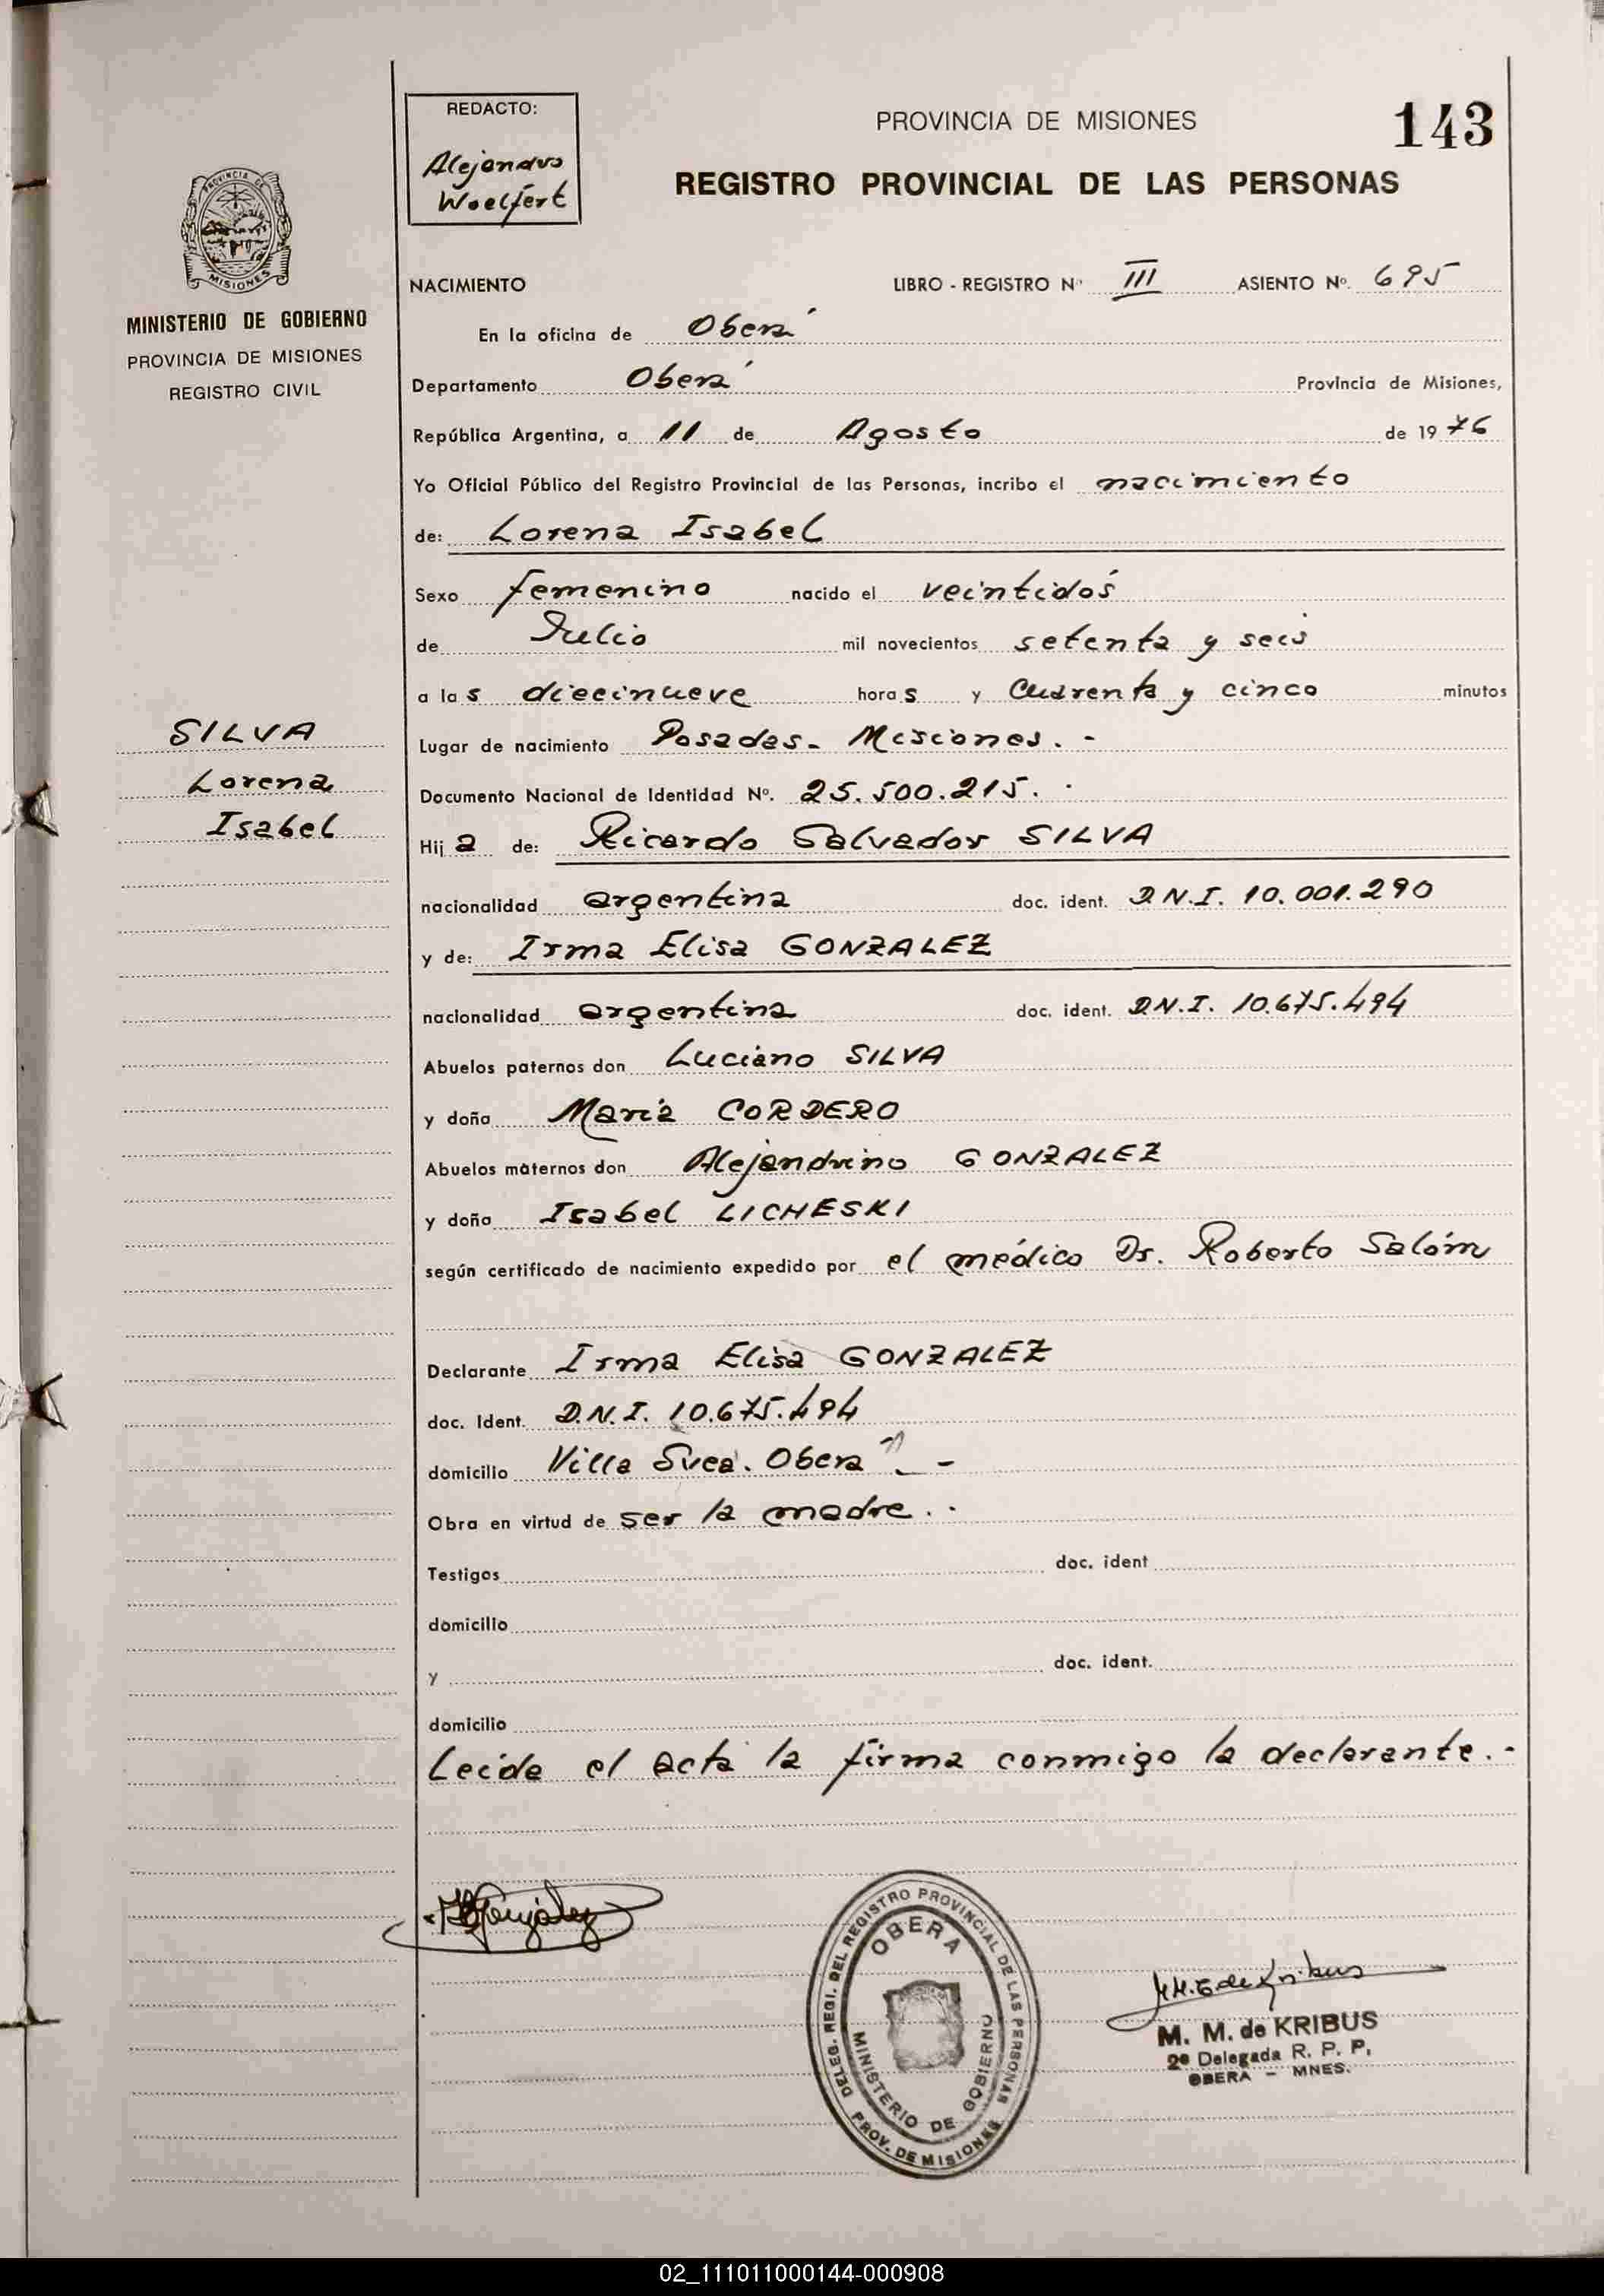 REDACTO:
Alejandro
Woelfert
PROVINCIA DE MISIONES
143
REGISTRO PROVINCIAL DE LAS PERSONAS
PROVINCIA DE
MISIONES
MINISTERIO DE GOBIERNO
PROVINCIA DE MISIONES
REGISTRO CIVIL
NACIMIENTO LIBRO - REGISTRO Nº III ASIENTO Nº. 695
En la oficina de Oberá
Departamento Oberá Provincia de Misiones,
República Argentina, a 11 de Agosto de 1976
Yo Oficial Público del Registro Provincial de las Personas, incribo el nacimiento
de: Lorena Isabel
Sexo femenino nacido el veintidós
de Julio mil novecientos setenta y seis
a las diecinueve horas y cuarenta y cinco minutos
SILVA
Lorena
Isabel
Lugar de nacimiento Posadas - Misiones. -
Documento Nacional de Identidad Nº. 25.500.215. -
Hija de: Ricardo Salvador SILVA
nacionalidad argentina doc. ident. D.N.I. 10.001.290
y de: Irma Elisa GONZALEZ
nacionalidad argentina doc. ident. D.N.I. 10.675.494
Abuelos paternos don Luciano SILVA
y doña María CORDERO
Abuelos maternos don Alejandrino GONZALEZ
y doña Isabel LICHESKI
según certificado de nacimiento expedido por el médico Dr. Roberto Salóm
Declarante Irma Elisa GONZALEZ
doc. Ident. D.N.I. 10.675.494
domicilio Villa Svea. Oberá -
Obra en virtud de ser la madre. -
Testigos doc. ident
domicilio
y doc. ident.
domicilio
Leída el acta la firma conmigo la declarante. -
González
DELEG. REGI. DEL REGISTRO PROVINCIAL DE LAS PERSONAS
OBERA
MINISTERIO DE GOBIERNO
PROV. DE MISIONES
M. M. de Kribus
M. M. de KRIBUS
2º Delegada R. P. P.
OBERA - MNES.
02_111011000144-000908